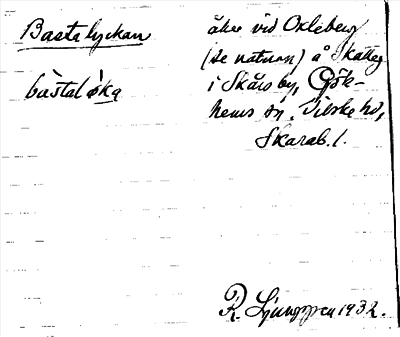 Bastalyckan
båstaløka
åker vid Oxleberg
(se naturn) å Skatteg
i Skårs by, Göte-
hems sn. Vilske hd,
Skarab. l.
R. Ljunggren 1932.